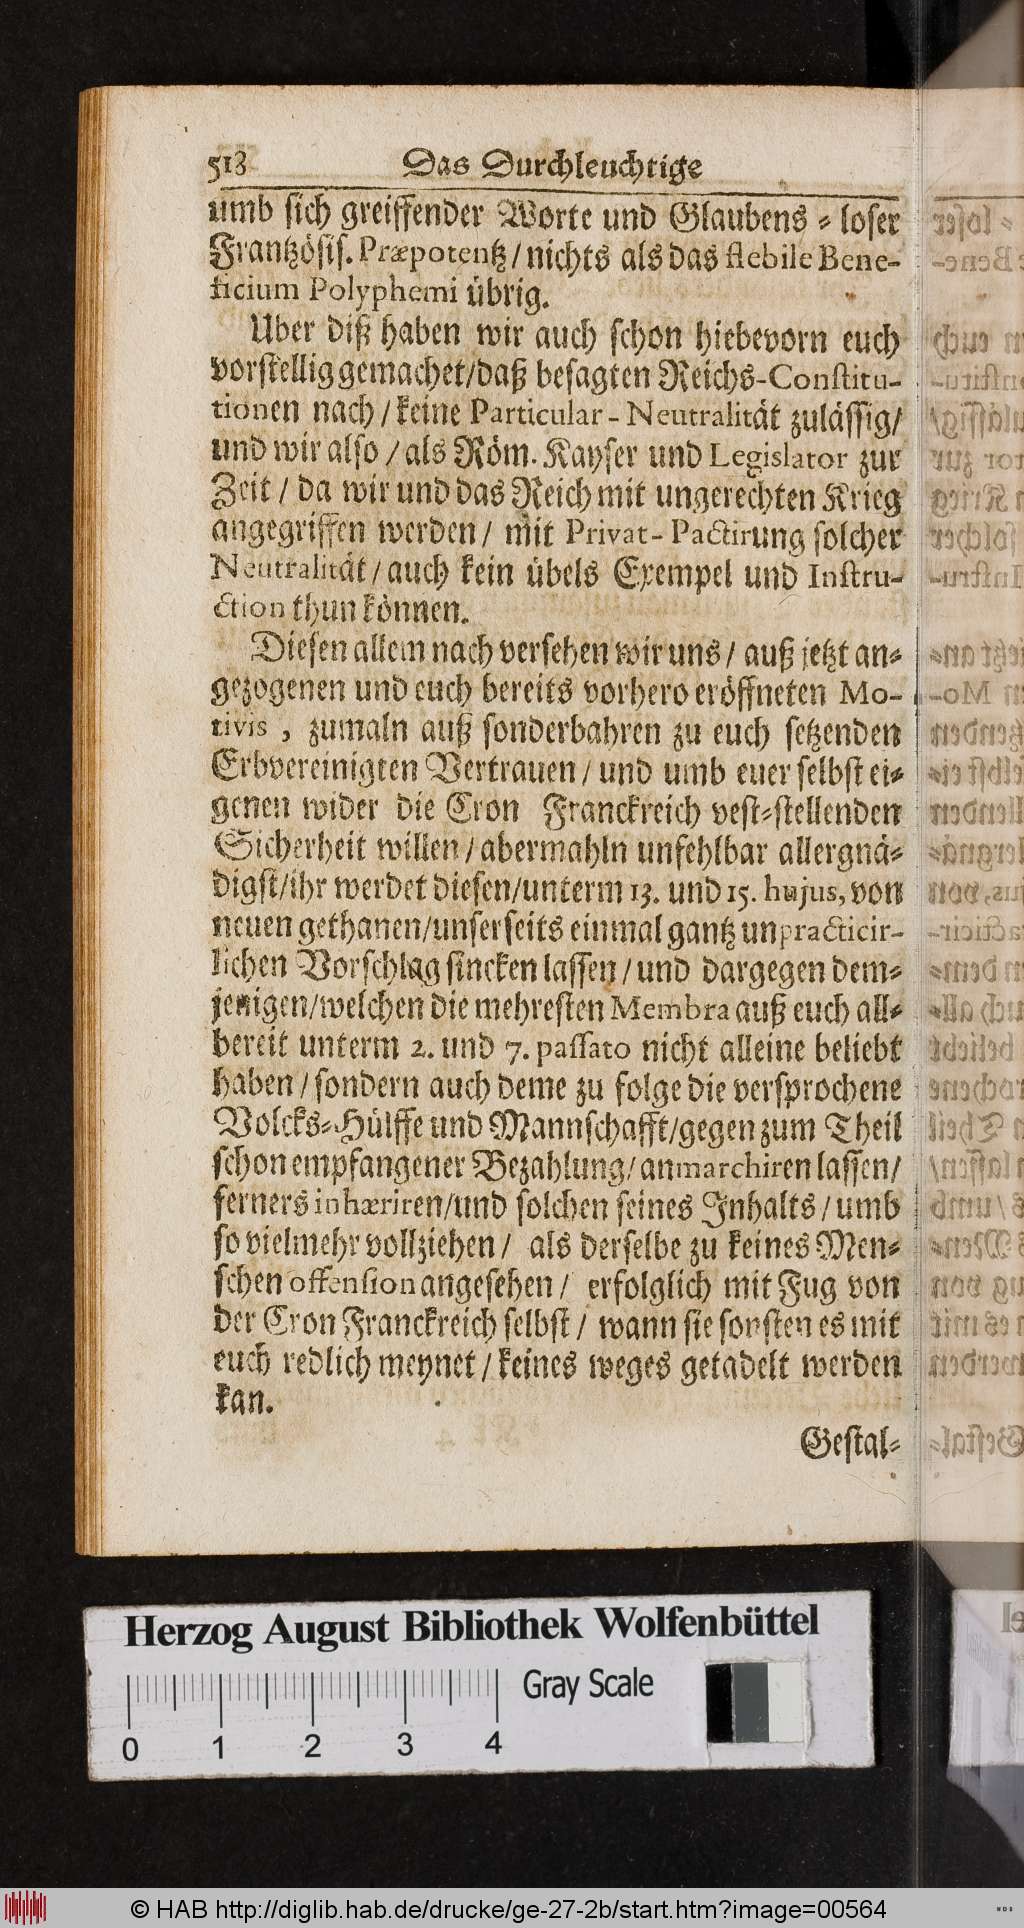 518 Das Durchleuchtige
umb sich greiffender Worte und Glaubens = loser
Frantzösis. Præpotentz / nichts als das flebile Bene-
ficium Polyphemi übrig.
Uber diß haben wir auch schon hiebevorn euch
vorstellig gemachet/daß besagten Reichs-Constitu-
tionen nach / keine Particular - Neutralität zulässig/
und wir also / als Röm. Kayser und Legislator zur
Zeit / da wir und das Reich mit ungerechten Krieg
angegriffen werden / mit Privat- Pactirung solcher
Neutralität / auch kein übels Exempel und Instru-
ction thun können.
Diesen allem nach versehen wir uns / auß jetzt an=
gezogenen und euch bereits vorhero eröffneten Mo-
tivis , zumaln auß sonderbahren zu euch setzenden
Erbvereinigten Vertrauen / und umb euer selbst ei=
genen wider die Cron Franckreich vest=stellenden
Sicherheit willen / abermahln unfehlbar allergnä=
digst/ihr werdet diesen/unterm 13. und 15. hujus, von
neuen gethanen/unserseits einmal gantz unpracticir-
lichen Vorschlag sincken lassen / und dargegen dem=
jenigen/welchen die mehresten Membra auß euch all=
bereit unterm 2. und 7. passato nicht alleine beliebt
haben / sondern auch deme zu folge die versprochene
Volcks=Hülffe und Mannschafft/gegen zum Theil
schon empfangener Bezahlung/ anmarchiren lassen/
ferners inhæriren/und solchen seines Inhalts / umb
so vielmehr vollziehen / als derselbe zu keines Men=
schen offension angesehen / erfolglich mit Fug von
der Cron Franckreich selbst / wann sie sonsten es mit
euch redlich meynet / keines weges getadelt werden
kan.
Gestal=
Herzog August Bibliothek Wolfenbüttel
Gray Scale
0 1 2 3 4
© HAB http://diglib.hab.de/drucke/ge-27-2b/start.htm?image=00564